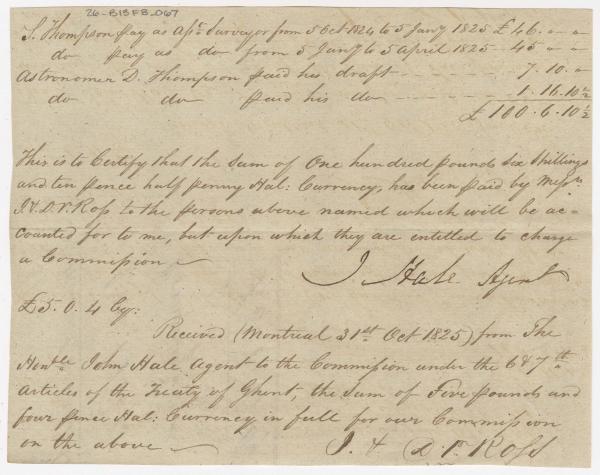 26-B15F8-067
S. Thompson pay as Asst Surveyor from 5 Oct 1824 to 5 Jany 1825 £ 46. " "
do pay as do from 5 Jany to 5 April 1825 - 45 " "
Astronomer D. Thompson paid his draft - - - 7. 10. "
do do paid his do - - - - 1. 16. 10 1/2
£ 100. 6. 10 1/2
This is to Certify that the Sum of One hundred pounds six Shillings
and ten pence half penny Hal: Currency, has been paid by Messrs
J. & D. P. Ross to the persons above named which will be ac-
counted for to me, but upon which they are entitled to charge
a Commission
J. Hale Agent
£5. 0. 4 Cy:
Received (Montreal 31st Oct 1825) from The
Honble John Hale Agent to the Commission under the 6 & 7th
articles of the Treaty of Ghent, the Sum of Five pounds and
four pence Hal: Currency in full for our Commission
on the above
J. & D. P. Ross